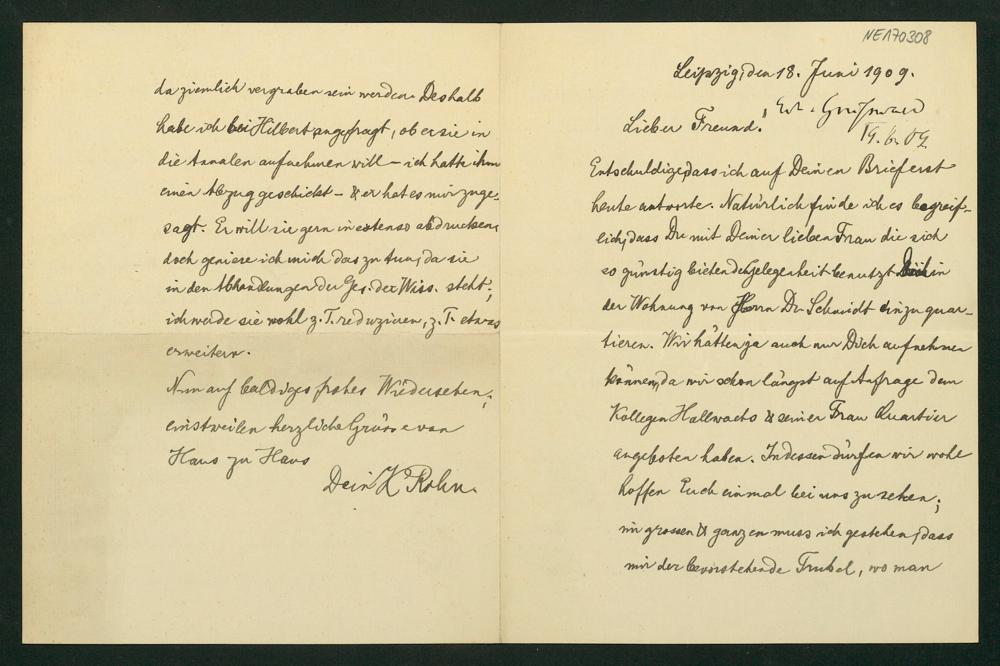 NE170308
Leipzig, den 18. Juni 1909.
19.6.09
Lieber Freund!
Entschuldige, dass ich auf Deinen Brief erst
heute antworte. Natürlich finde ich es begreif-
lich, dass Du mit Deiner lieben Frau die sich
so günstig bietende Gelegenheit benutzt in
der Wohnung von Herrn Dr. Schmidt einzuquar-
tieren. Wir hätten ja auch nur Dich aufnehmen
können, da wir schon längst auf Anfrage dem
Kollegen Hallwachs & seiner Frau Quartier
angeboten haben. Indessen dürfen wir wohl
hoffen Euch einmal bei uns zu sehen;
im grossen & ganzen muss ich gestehen, dass
mir der bevorstehende Trubel, wo man
da ziemlich vergraben sein werden. Deshalb
habe ich bei Hilbert angefragt, ob er sie in
die Annalen aufnehmen will – ich hatte ihm
einen Abzug geschickt – & er hat es mir zuge-
sagt. Er will sie gern in extenso abdrucken,
doch geniere ich mich das zu tun, da sie
in den Abhandlungen der Ges. der Wiss. steht;
ich werde sie wohl z. T. reduzieren, z. T. etwas
erweitern.
Nun auf baldiges frohes Wiedersehen;
einstweilen herzliche Grüsse von
Haus zu Haus
Dein K Rohn.